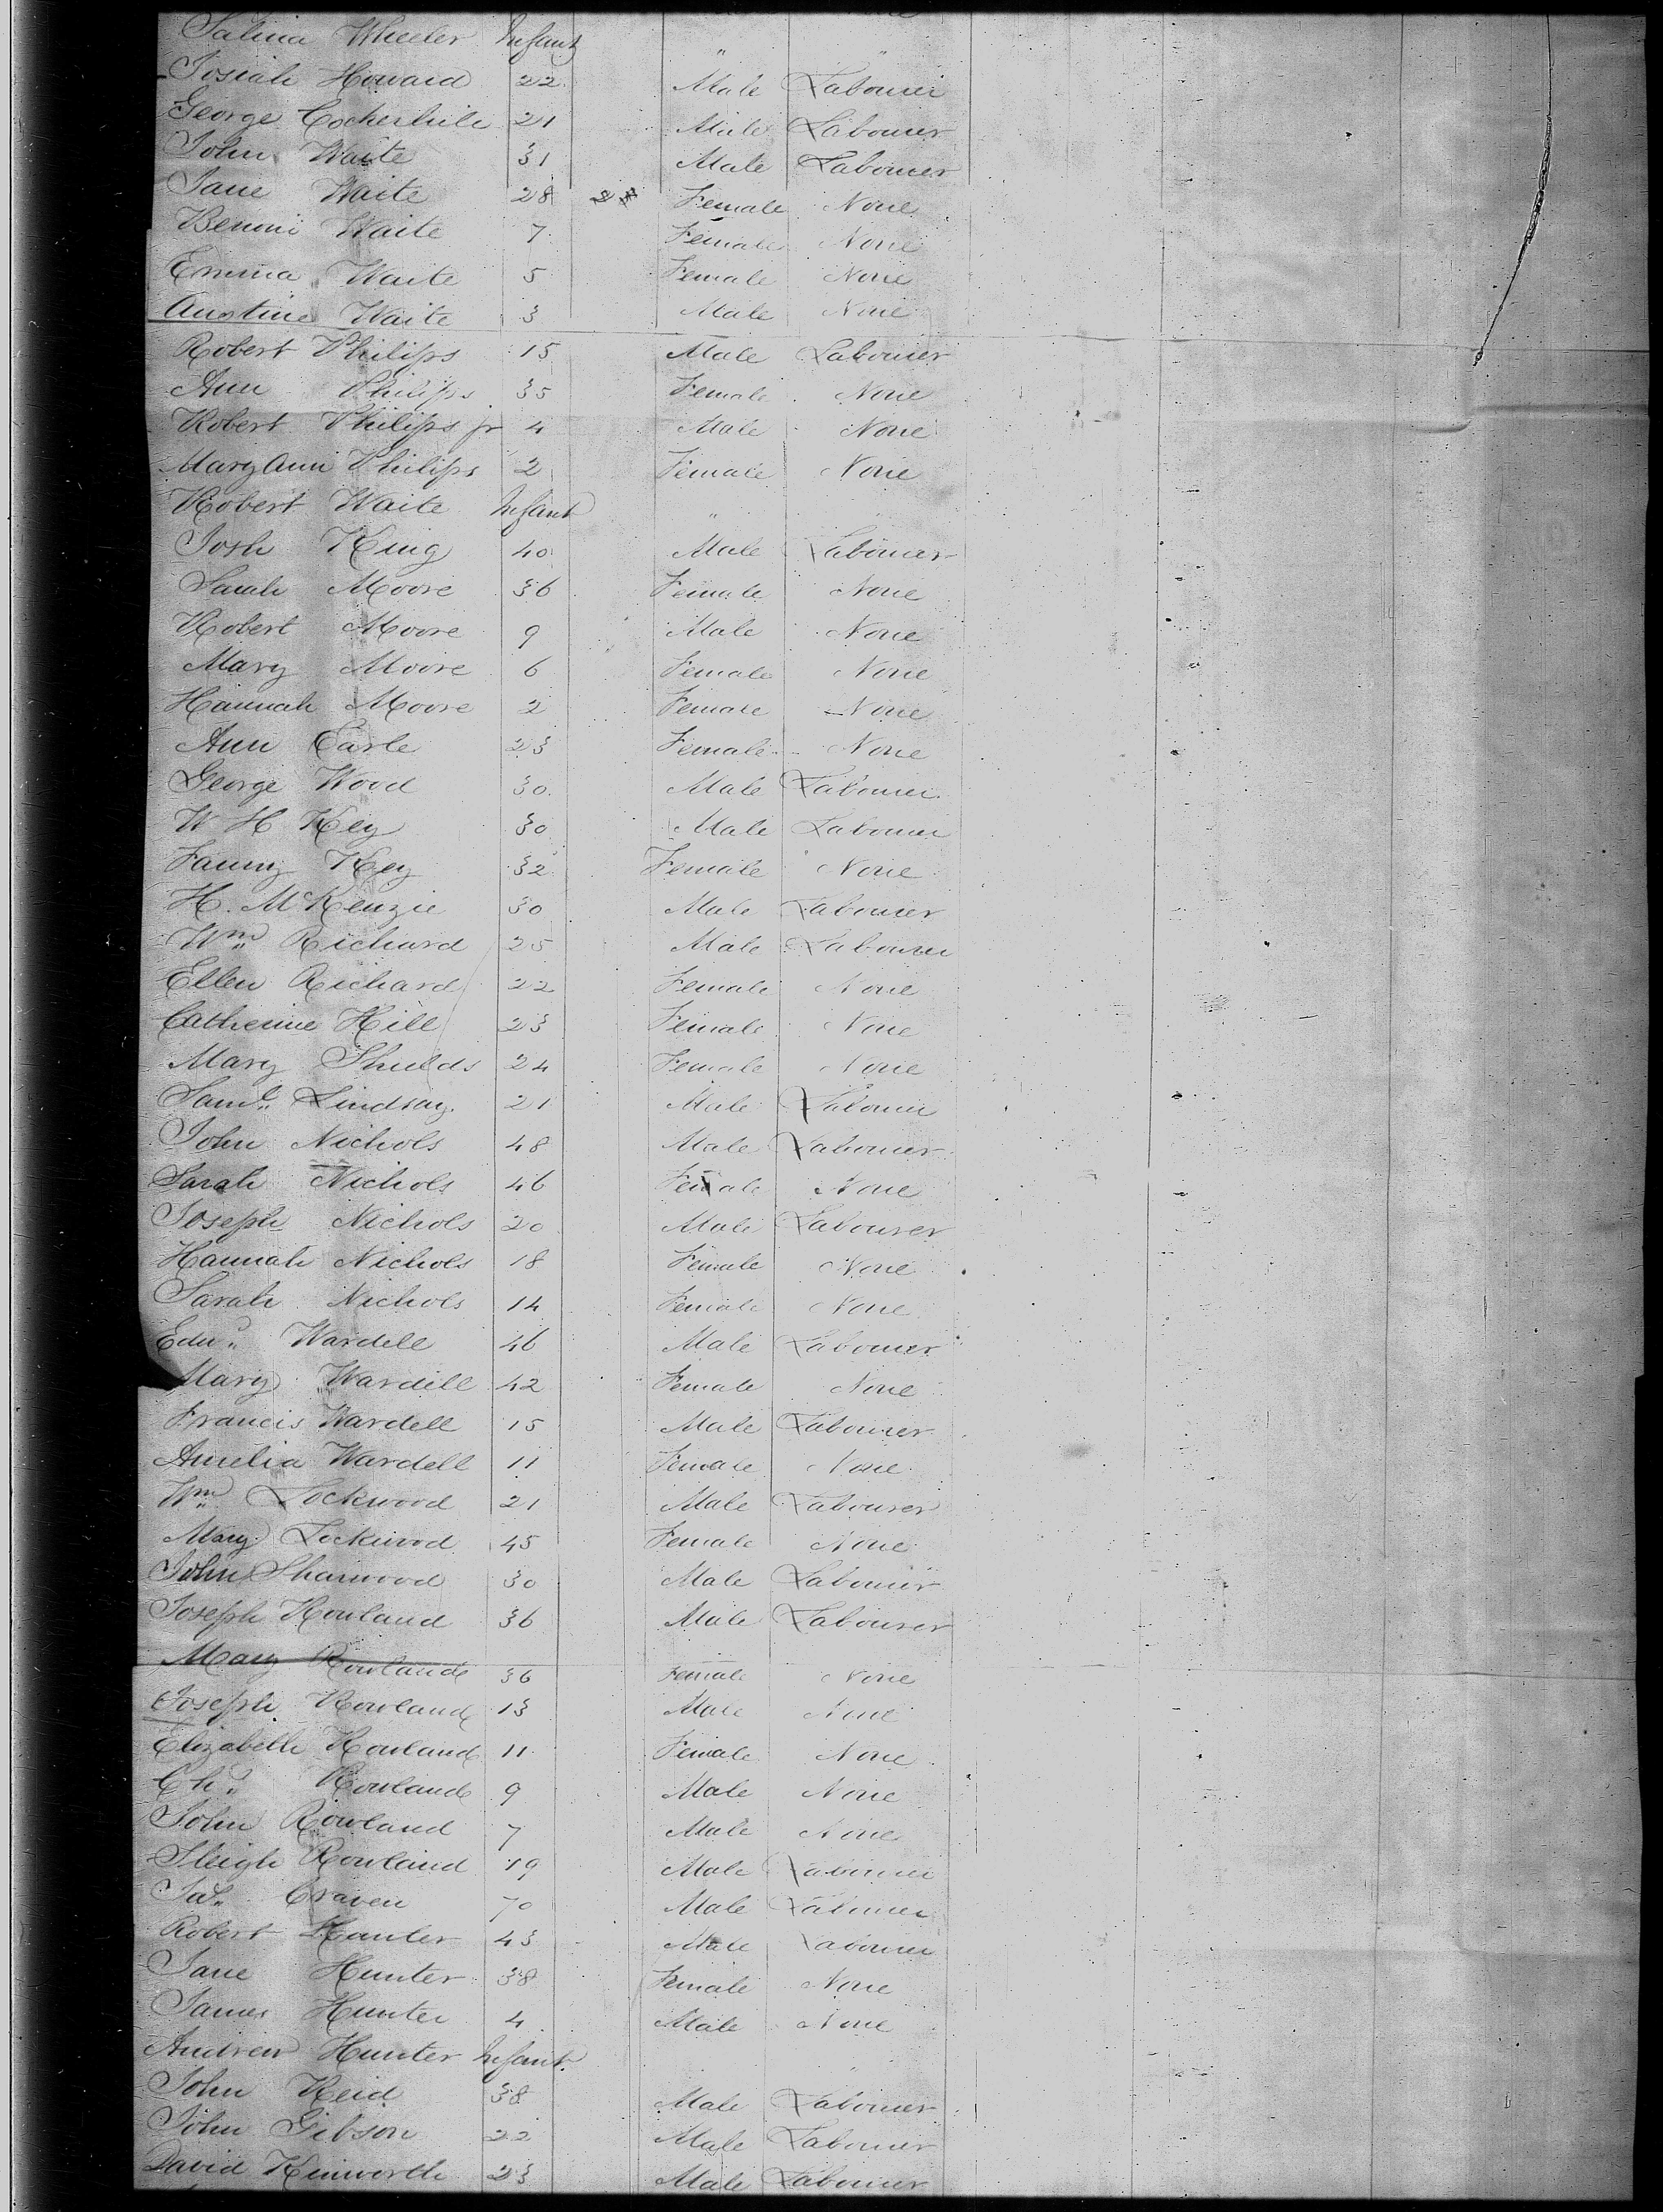 Salina Wheeler Infant " "
Josiah Howard 22 Male Labourer
George Cockerhile 21 Male Labourer
John Waite 31 Male Labourer
Jane Waite 28 Female None
Benoni Waite 7 Female None
Emma Waite 5 Female None
Austine Waite 3 Male None
Robert Philips 15 Male Labourer
Ann Philips 35 Female None
Robert Philips jr 4 Male None
Mary Ann Philips 2 Female None
Robert Waite Infant " "
Josh King 40 Male Labourer
Sarah Moore 36 Female None
Robert Moore 9 Male None
Mary Moore 6 Female None
Hannah Moore 2 Female None
Ann Earle 23 Female None
George Wood 30 Male Labourer
W H Key 30 Male Labourer
Fanny Key 32 Female None
H. McKenzie 30 Male Labourer
Wm Richard 25 Male Labourer
Ellen Richard 22 Female None
Catherine Hill 23 Female None
Mary Shields 24 Female None
Saml. Lindsay 21 Male Labourer
John Nichols 48 Male Labourer
Sarah Nichols 46 Female None
Joseph Nichols 20 Male Labourer
Hannah Nichols 18 Female None
Sarah Nichols 14 Female None
Edwd. Wardell 46 Male Labourer
Mary Wardell 42 Female None
Francis Wardell 15 Male Labourer
Amelia Wardell 11 Female None
Wm Lockwood 21 Male Labourer
Mary Lockwood 45 Female None
John Sharwood 30 Male Labourer
Joseph Rowland 36 Male Labourer
Mary Rowland 36 Female None
Joseph Rowland 13 Male None
Elizabeth Rowland 11 Female None
Chs. Rowland 9 Male None
John Rowland 7 Male None
Sleigh Rowland 19 Male Labourer
Jas. Craven 70 Male Labourer
Robert Hunter 43 Male Labourer
Jane Hunter 38 Female None
James Hunter 4 Male None
Andrew Hunter Infant " "
John Reid 38 Male Labourer
John Gibson 22 Male Labourer
David Kenworth 23 Male Labourer